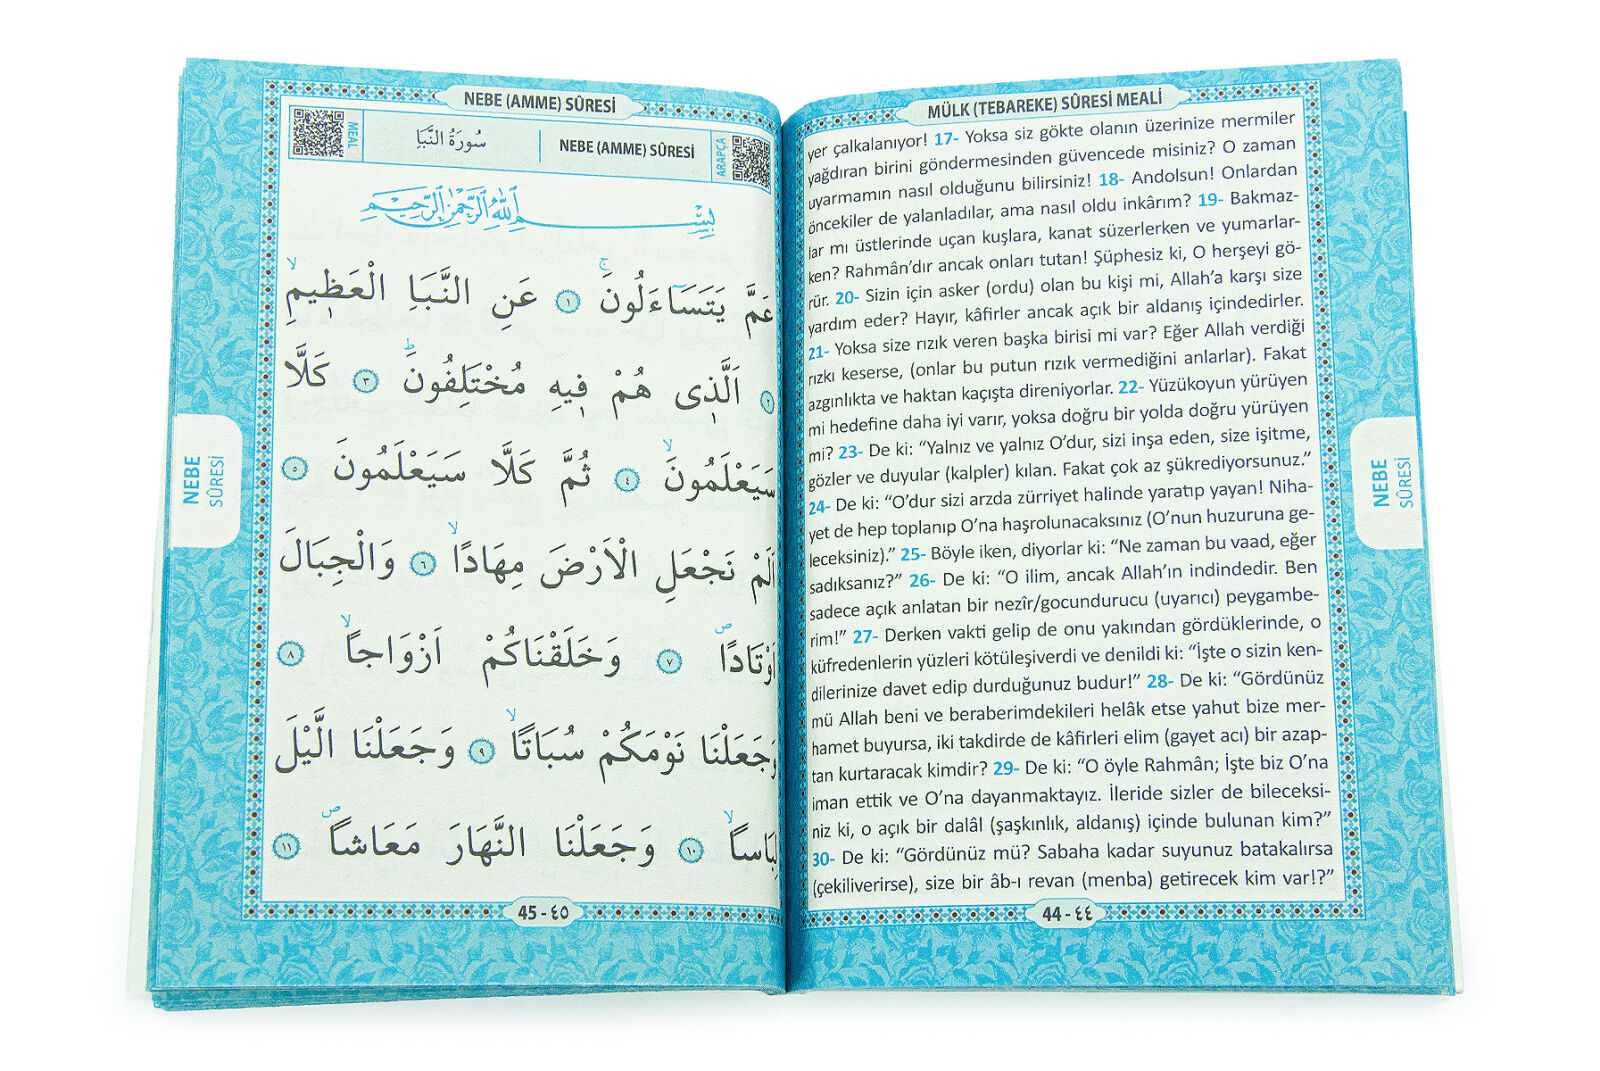 MÜLK (TEBAREKE) SÛRESİ MEALİ
yer çalkalanıyor! 17- Yoksa siz gökte olanın üzerinize mermiler
yağdıran birini göndermesinden güvencede misiniz? O zaman
uyarmamın nasıl olduğunu bilirsiniz! 18- Andolsun! Onlardan
öncekiler de yalanladılar, ama nasıl oldu inkârım? 19- Bakmaz-
lar mı üstlerinde uçan kuşlara, kanat süzerlerken ve yumarlar-
ken? Rahmân’dır ancak onları tutan! Şüphesiz ki, O herşeyi gö-
rür. 20- Sizin için asker (ordu) olan bu kişi mi, Allah’a karşı size
yardım eder? Hayır, kâfirler ancak açık bir aldanış içindedirler.
21- Yoksa size rızık veren başka birisi mi var? Eğer Allah verdiği
rızkı keserse, (onlar bu putun rızık vermediğini anlarlar). Fakat
azgınlıkta ve haktan kaçışta direniyorlar. 22- Yüzükoyun yürüyen
mi hedefine daha iyi varır, yoksa doğru bir yolda doğru yürüyen
mi? 23- De ki: “Yalnız ve yalnız O’dur, sizi inşa eden, size işitme,
gözler ve duyular (kalpler) kılan. Fakat çok az şükrediyorsunuz.”
24- De ki: “O’dur sizi arzda zürriyet halinde yaratıp yayan! Niha-
yet de hep toplanıp O’na haşrolunacaksınız (O’nun huzuruna ge-
leceksiniz).” 25- Böyle iken, diyorlar ki: “Ne zaman bu vaad, eğer
sadıksanız?” 26- De ki: “O ilim, ancak Allah’ın indindedir. Ben
sadece açık anlatan bir nezîr/gocundurucu (uyarıcı) peygambe-
rim!” 27- Derken vakti gelip de onu yakından gördüklerinde, o
küfredenlerin yüzleri kötüleşiverdi ve denildi ki: “İşte o sizin ken-
dilerinize davet edip durduğunuz budur!” 28- De ki: “Gördünüz
mü Allah beni ve beraberimdekileri helâk etse yahut bize mer-
hamet buyursa, iki takdirde de kâfirleri elim (gayet acı) bir azap-
tan kurtaracak kimdir? 29- De ki: “O öyle Rahmân; İşte biz O’na
iman ettik ve O’na dayanmaktayız. İleride sizler de bileceksi-
niz ki, o açık bir dalâl (şaşkınlık, aldanış) içinde bulunan kim?”
30- De ki: “Gördünüz mü? Sabaha kadar suyunuz batakalırsa
(çekiliverirse), size bir âb-ı revan (menba) getirecek kim var!?”
44 - ٤٤
NEBE
SÛRESİ
NEBE (AMME) SÛRESİ
ARAPÇA
NEBE (AMME) SÛRESİ
سُورَةُ النَّبَأِ
MEAL
بِسْمِ اللّٰهِ الرَّحْمٰنِ الرَّحِيمِ
عَمَّ يَتَسَٓاءَلُونَۚ ١ عَنِ النَّبَأِ الْعَظ۪يمِۙ
٢ اَلَّذ۪ى هُمْ ف۪يهِ مُخْتَلِفُونَۜ ٣ كَلَّا
سَيَعْلَمُونَۙ ٤ ثُمَّ كَلَّا سَيَعْلَمُونَ ٥
اَلَمْ نَجْعَلِ الْاَرْضَ مِهَادًاۙ ٦ وَالْجِبَالَ
اَوْتَادًاۖ ٧ وَخَلَقْنَاكُمْ اَزْوَاجًاۙ ٨
وَجَعَلْنَا نَوْمَكُمْ سُبَاتًاۙ ٩ وَجَعَلْنَا الَّيْلَ
لِبَاسًاۙ ١٠ وَجَعَلْنَا النَّهَارَ مَعَاشًاۖ ١١
45 - ٤٥
NEBE
SÛRESİ